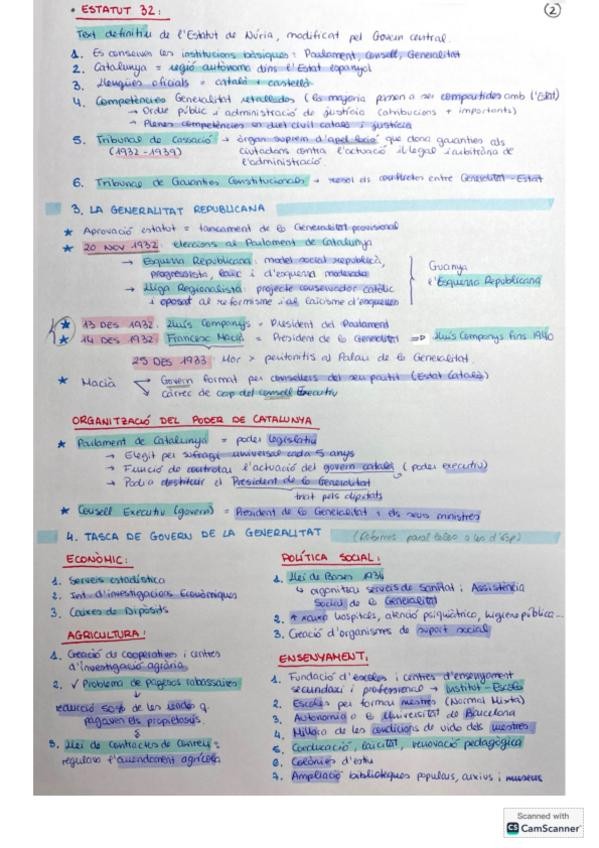 • ESTATUT 32:
2
Text definitiu de l'Estatut de Núria, modificat pel Govern central.
1. Es conserven les institucions bàsiques: Parlament, consell, Generalitat
2. Catalunya = regió autònoma dins l'Estat espanyol
3. Llengües oficials = català + castellà
4. Competències Generalitat retallades (la majoria passen a ser compartides amb l'Estat)
→ Ordre públic i administració de justícia (atribucions + importants)
→ Plenes competències en dret civil català i justícia
5. Tribunal de Cassació → òrgan suprem d'apel·lació que dona garanties als
(1932-1939) ciutadans contra l'actuació il·legal i arbitrària de
l'administració.
6. Tribunal de Garanties Constitucionals → resol els conflictes entre Generalitat-Estat
3. LA GENERALITAT REPUBLICANA
★ Aprovació estatut = tancament de la Generalitat provisional
★ 20 NOV 1932: eleccions al Parlament de Catalunya
→ Esquerra Republicana: model social republicà,
progressista, laic i d'esquerra moderada
→ Lliga Regionalista: projecte conservador catòlic
i oposat al reformisme i al laïcisme d'esquerres
Guanya
l'Esquerra Republicana
★ 13 DES 1932: Lluís Companys = President del Parlament
★ 14 DES 1932: Francesc Macià = President de la Generalitat ⇒ Lluís Companys fins 1940
25 DES 1933: Mor x peritonitis al Palau de la Generalitat.
★ Macià Govern format per consellers del seu partit (Estat Català)
càrrec de cap del consell Executiu
ORGANITZACIÓ DEL PODER DE CATALUNYA
★ Parlament de Catalunya = poder legislatiu
→ Elegit per sufragi universal cada 5 anys
→ Funció de controlar l'actuació del govern català (poder executiu)
→ Podia destituir el President de la Generalitat
triat pels diputats
★ Consell Executiu (govern) = President de la Generalitat i els seus ministres
4. TASCA DE GOVERN DE LA GENERALITAT (Reformes paral·leles a les d'Esp)
ECONÒMIC:
1. Serveis estadística
2. Inst. d'investigacions Econòmiques
3. Caixes de Dipòsits
AGRICULTURA:
1. Creació de cooperatives i centres
d'investigació agrària
2. ✓ Problema de pagesos rabassaires
↓
reducció 50% de les rendes q.
pagaven els propietaris.
3. Llei de contractes de conreu =
regulava l'arrendament agrícola
POLÍTICA SOCIAL:
1. Llei de Bases 1934
↳ organitzar serveis de Sanitat i Assistència
Social de la Generalitat
2. xarxa hospitals, atenció psiquiàtrica, higiene pública...
3. Creació d'organismes de suport social
ENSENYAMENT:
1. Fundació d'escoles i centres d'ensenyament
secundari i professional → Institut-Escola
2. Escoles per formar mestres (Normal Mixta)
3. Autonomia a la Universitat de Barcelona
4. Millora de les condicions de vida dels mestres
5. Coeducació, laïcitat, renovació pedagògica
6. Colònies d'estiu
7. Ampliació biblioteques populars, arxius i museus
Scanned with
CS CamScanner